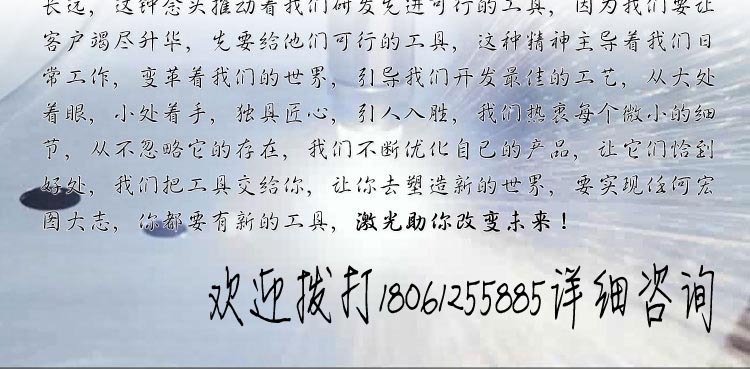 长远，这种念头推动着我们研发先进可行的工具，因为我们要让
客户竭尽升华，先要给他们可行的工具，这种精神主导着我们日
常工作，变革着我们的世界，引导我们开发最佳的工艺，从大处
着眼，小处着手，独具匠心，引人入胜，我们热衷每个微小的细
节，从不忽略它的存在，我们不断优化自己的产品，让它们恰到
好处，我们把工具交给你，让你去塑造新的世界，要实现任何宏
图大志，你都要有新的工具，激光助你改变未来！
欢迎拨打18061255885详细咨询